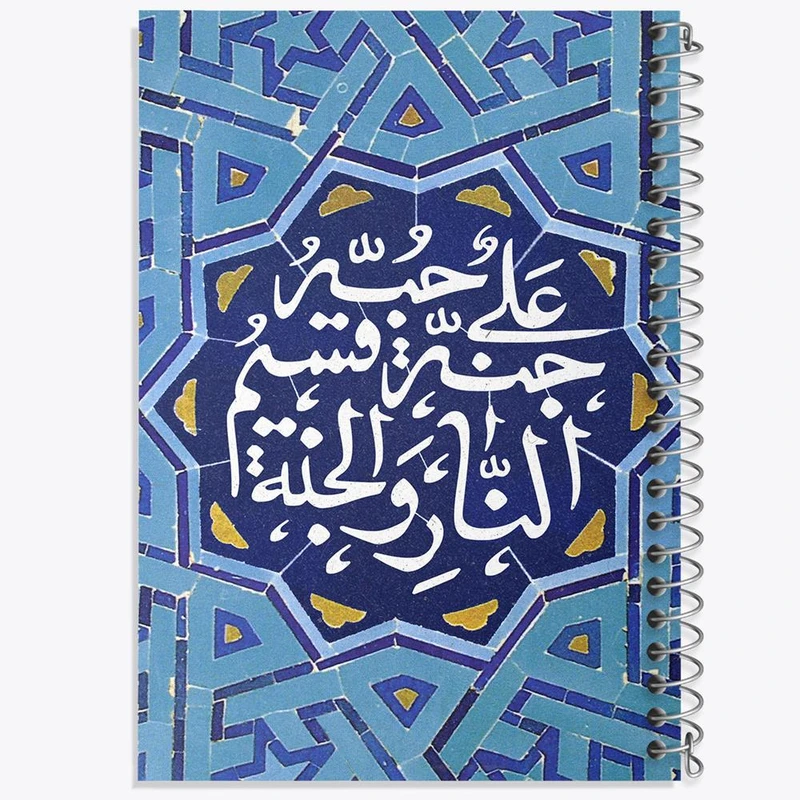 عَلیٌ حُبُّهُ
جُنَّة قَسیمُ
النّارِ وَ الجنة